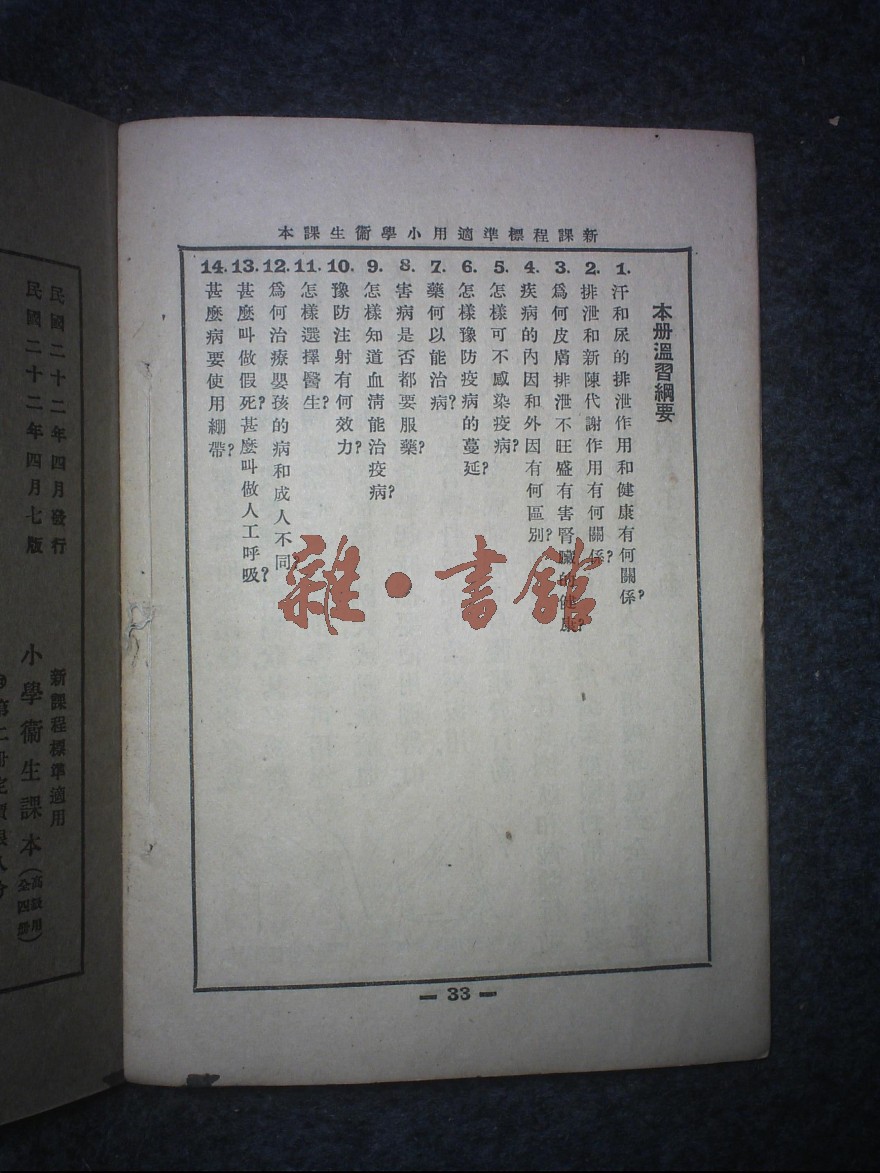 新課程標準適用小學衞生課本
本册溫習綱要
1. 汗和尿的排泄作用和健康有何關係？
2. 排泄和新陳代謝作用有何關係？
3. 爲何皮膚排泄不旺盛有害腎臟的健康？
4. 疾病的內因和外因有何區別？
5. 怎樣可不感染疫病？
6. 怎樣豫防疫病的蔓延？
7. 藥何以能治病？
8. 害病是否都要服藥？
9. 怎樣知道血淸能治疫病？
10. 豫防注射有何效力？
11. 怎樣選擇醫生？
12. 爲何治療嬰孩的病和成人不同？
13. 甚麼叫做假死？甚麼叫做人工呼吸？
14. 甚麼病要使用繃帶？
— 33 —
雜·書館
民國二十二年四月發行
民國二十二年四月七版
新課程標準適用
小學衞生課本（高級用全四册）